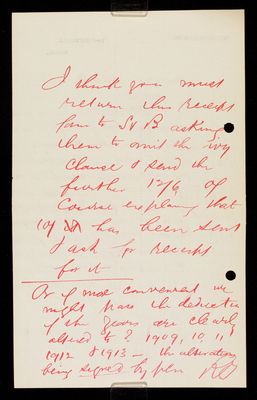 I think you must
return this receipt
form to S & B asking
them to omit the
clause & send the
further 12/6 of
course explaining that
10/ has been sent
& ask for receipt
for it
Or if more convenient we
might pass the deduction
if the years are clearly
altered to ? 1909, 10, 11
1912 & 1913 — the alterations
being signed by pen